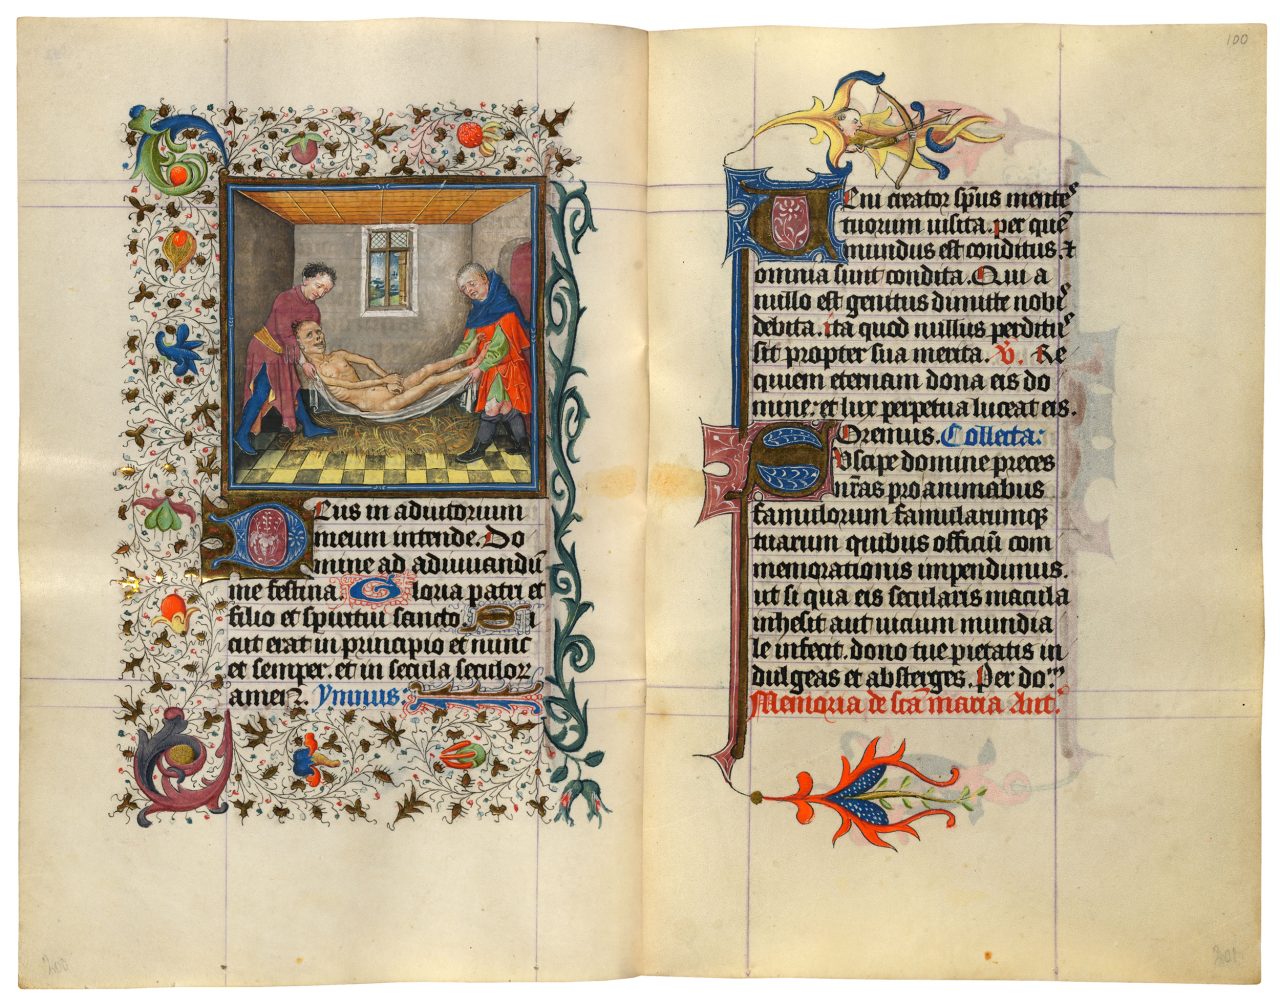 Deus in adiutorium
meum intende. Do
mine ad adiuuandū
me festina. Gloria patri et
filio et spiritui sancto. Si
cut erat in principio et nunc
et semper. et in secula seculorꝝ
amen. Ymnus:
100
Veni creator sp̄us mentes
tuorum uisita. per quē
mundus est conditus. ⁊
omnia sunt condita. Qui a
nullo est genitus dimitte nobis
debita. ita quod nullus perditus
sit propter sua merita. V̄. Re
quiem eternam dona eis do
mine. et lux perpetua luceat eis.
Oremus. Collecta:
Suscipe domine preces
nr̄as pro animabus
famulorum famularumqꝫ
tuarum quibus officiū com
memorationis impendimus.
ut si qua eis secularis macula
inhesit aut uicium mundia
le infecit. dono tue pietatis in
dulgeas et absterges. Per do.
Memoria de scā maria Ant.
200
201